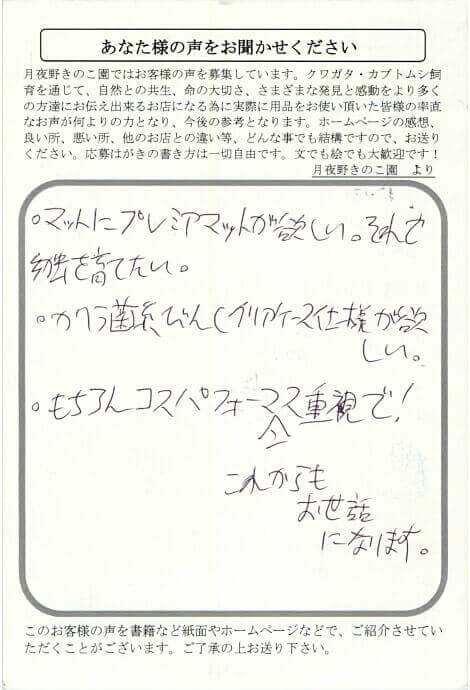 あなた様の声をお聞かせください
月夜野きのこ園ではお客様の声を募集しています。クワガタ・カブトムシ飼
育を通じて、自然との共生、命の大切さ、さまざまな発見と感動をより多く
の方達にお伝え出来るお店になる為に実際に用品をお使い頂いた皆様の率直
なお声が何よりの力となり、今後の参考となります。ホームページの感想、
良い所、悪い所、他のお店との違い等、どんな事でも結構ですので、お送り
ください。応募はがきの書き方は一切自由です。文でも絵でも大歓迎です！
月夜野きのこ園 より
・マットにプレミアマットが欲しい。それで
を育てたい。
・カワラ菌糸びん(クリアケース仕様が欲
しい。
・もちろんコスパフォーマンス重視で!
これからも
お世話
になります。
このお客様の声を書籍など紙面やホームページなどで、ご紹介させてい
ただくことがございます。ご了承の上お送り下さい。